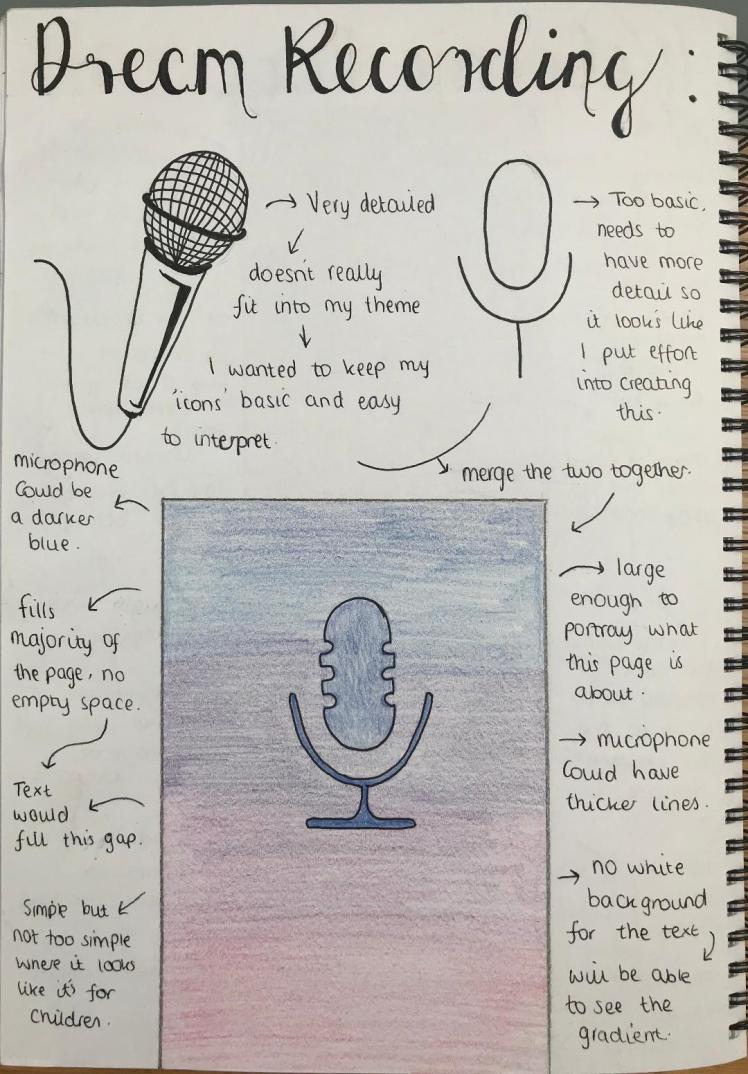 Dream Recording:
→ Very detailed
doesn't really
fit into my theme
I wanted to keep my
'icons' basic and easy
to interpret.
→ Too basic,
needs to
have more
detail so
it looks like
I put effort
into creating
this.
merge the two together.
microphone
Could be
a darker
blue.
fills
majority of
the page, no
empty space.
Text
would
fill this gap.
Simple but
not too simple
where it looks
like it's for
Children.
→ large
enough to
portray what
this page is
about.
→ microphone
Could have
thicker lines.
→ no white
background
for the text
will be able
to see the
gradient.